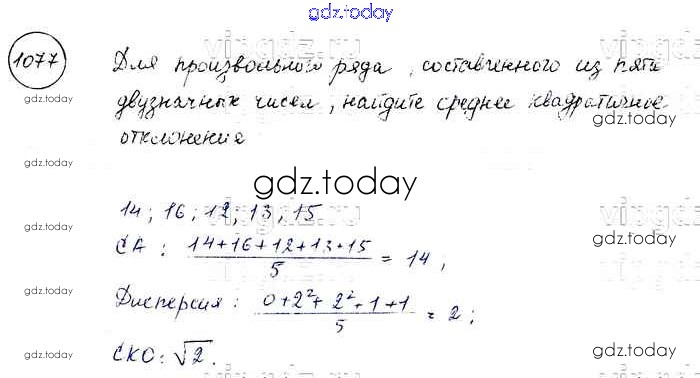 gdz.today
1077
Для произвольного ряда, составленного из пяти
двузначных чисел, найдите среднее квадратичное
отклонение
gdz.today
gdz.today
gdz.today
gdz.today
14; 16; 12; 13; 15
СА: (14+16+12+13+15)/5 = 14;
gdz.today
gdz.today
Дисперсия: (0+2²+2²+1+1)/5 = 2;
СКО: √2.
gdz.today
gdz.today